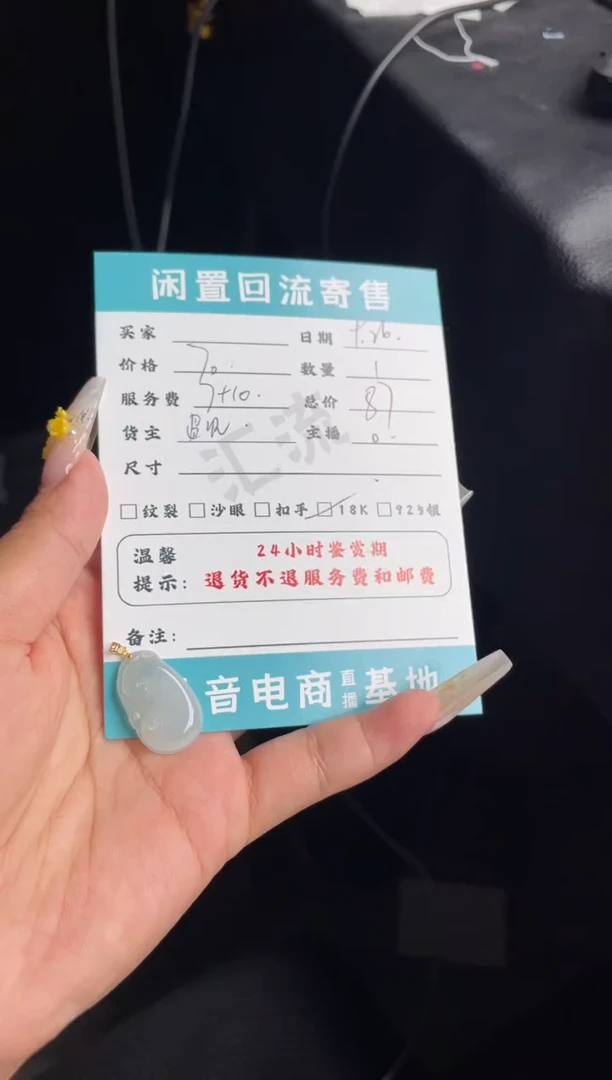 闲置回流寄售
买家 日期
价格 70. 数量 1
服务费 7+10. 总价 87
货主 主播
汇流
尺寸
□纹裂 □沙眼 □扣手 □18K □925银
温馨提示: 24小时鉴赏期
退货不退服务费和邮费
备注:
音电商直播基地